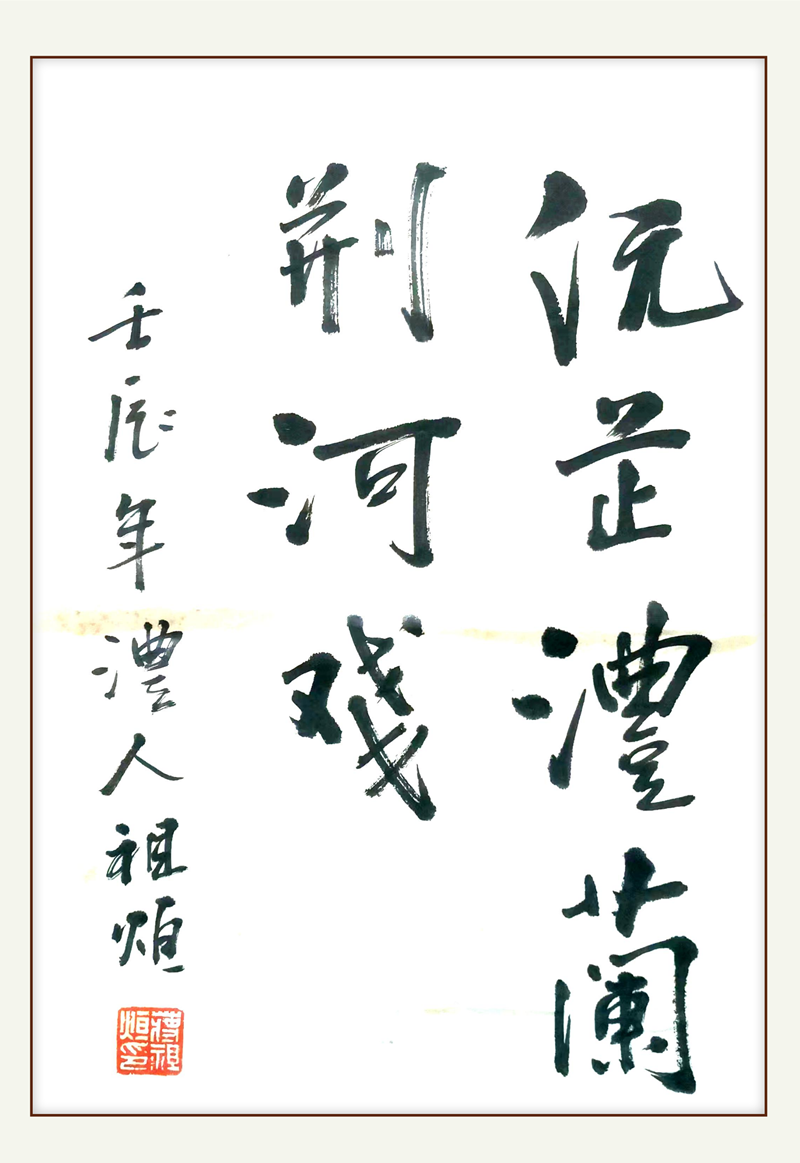 沅芷澧蘭
荆河戏
壬辰年澧人祖烜
蔣祖烜印